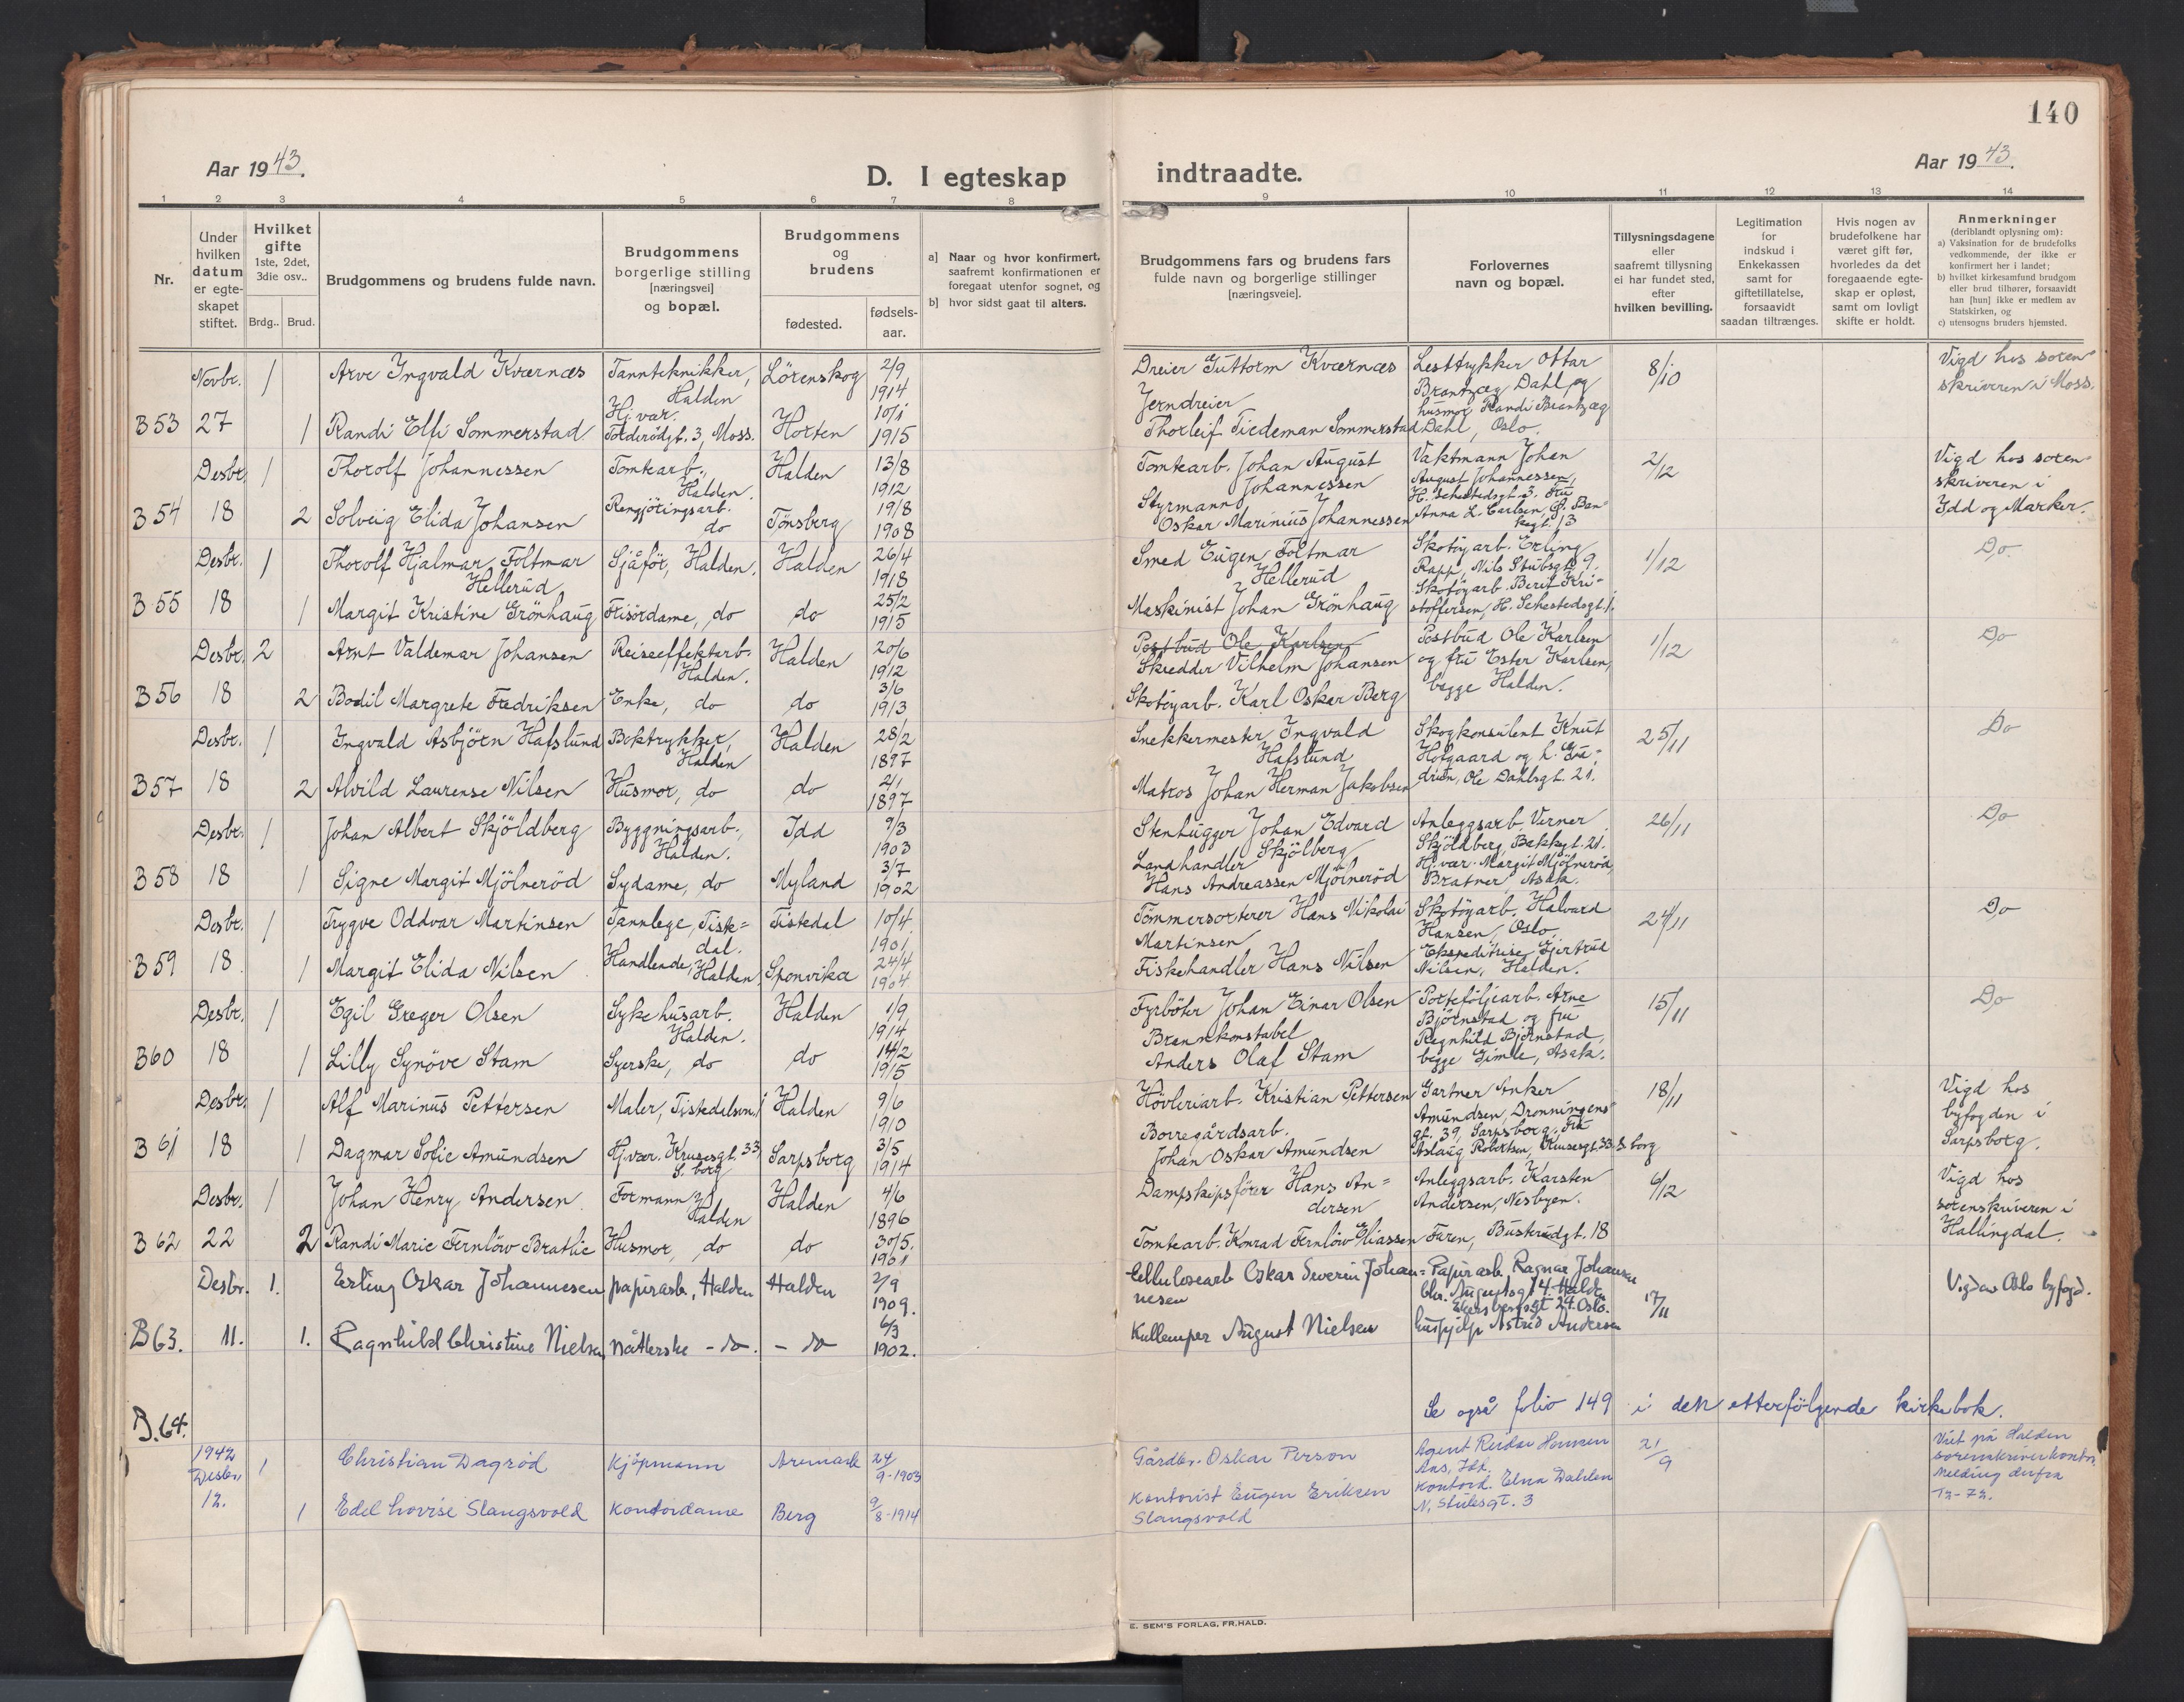 140
Aar 1943.
D. I egteskap indtraadte.
Aar 1943.
1 2 3 4 5 6 7 8 9 10 11 12 13 14
Nr.
Under
hvilken
datum
er egte-
skapet
stiftet.
Hvilket
gifte
1ste, 2det,
3die osv..
Brdg.. Brud.
Brudgommens og brudens fulde navn.
Brudgommens
borgerlige stilling
[næringsvei]
og bopæl.
Brudgommens
og
brudens
fødested.
fødsels-
aar.
a] Naar og hvor konfirmert,
saafremt konfirmationen er
foregaat utenfor sognet, og
b] hvor sidst gaat til alters.
Brudgommens fars og brudens fars
fulde navn og borgerlige stillinger
[næringsveie].
Forlovernes
navn og bopæl.
Tillysningsdagene
eller
saafremt tillysning
ei har fundet sted,
efter
hvilken bevilling.
Legitimation
for
indskud i
Enkekassen
samt for
giftetillatelse,
forsaavidt
saadan tiltrænges.
Hvis nogen av
brudefolkene har
været gift før,
hvorledes da det
foregaaende egte-
skap er opløst,
samt om lovligt
skifte er holdt.
Anmerkninger
(deriblandt oplysning om):
a) Vaksination for de brudefolks
vedkommende, der ikke er
konfirmert her i landet;
b) hvilket kirkesamfund brudgom
eller brud tilhører, forsaavidt
han [hun] ikke er medlem av
Statskirken, og
c) utensogns bruders hjemsted.
B 53
Novbr.
27
1
1
Arve Ingvald Kværnæs
Randi Elfi Sommerstad
Tannteknikker,
Halden
Hj.vær.
Tordenrödgt. 3, Moss.
Lörenskog
Horten
2/9
1914
10/1
1915
Dreier Guttorm Kværnæs
Jerndreier
Thorleif Tiedeman Sommerstad
Lesttrykker Ottar
Brantzæg Dahl og
husmor Randi Brantzæg
Dahl, Oslo.
8/10
Vigd hos soren-
skriveren i Moss.
B 54
Desbr.
18
1
2
Thorolf Johannessen
Solveig Elida Johansen
Tomtearb.,
Halden.
Rengjöringsarb.
do
Halden
Tönsberg
13/8
1912
19/8
1908
Tomtearb. Johan August
Johannessen
Styrmann
Oskar Marinius Johannessen
Vaktmann Johan
August Johannessen,
H. Sehestedsgt. 3. Fru
Anna L. Carlsen, G. Ban-
kegt. 13
2/12
Vigd hos soren-
skriveren i
Idd og Marker.
B 55
Desbr.
18
1
1
Thorolf Hjalmar Foltmar
Hellerud
Margit Kristine Grönhaug
Sjåför, Halden.
Frisördame, do
Halden
do
26/4
1918
25/2
1915
Smed Eugen Foltmar
Hellerud
Maskinist Johan Grönhaug
Skotöyarb. Erling
Rapp, Nils Stubsgt. 9.
Skotöyarb. Berit Kri-
stoffersen, H. Sehestedsgt. 1.
1/12
Do.
B 56
Desbr.
18
2
2
Arnt Valdemar Johansen
Bodil Margrete Fredriksen
Reiseeffektarb.
Halden.
Enke, do
Halden
do
20/6
1912
3/6
1913
Postbud Ole Karlsen
Skredder Vilhelm Johansen
Skotöyarb. Karl Oskar Berg
Postbud Ole Karlsen
og fru Ester Karlsen,
begge Halden.
1/12
Do
B 57
Desbr.
18
1
2
Ingvald Asbjörn Hafslund
Alvild Laurense Nilsen
Boktrykker,
Halden
Husmor, do
Halden
do
28/2
1897
2/1
1897
Snekkermester Ingvald
Hafslund
Matros Johan Herman Jakobsen
Skogkonsulent Knut
Hofgaard og h. Gu-
drun, Ole Dahlsgt. 21.
25/11
Do
B 58
Desbr.
18
1
1
Johan Albert Skjöldberg
Signe Margit Mjölneröd
Byggningsarb.,
Halden.
Sydame, do
Idd
Myland
9/3
1903
3/7
1902
Stenhugger Johan Edvard
Skjölberg
Landhandler
Hans Andreassen Mjölneröd
Anleggsarb. Verner
Skjöldberg, Bakkegt. 21.
Hj.vær. Margit Mjölneröd,
Bratner, Asak.
26/11
Do
B 59
Desbr.
18.
1
1
Trygve Oddvar Martinsen
Margit Elida Nilsen
Tannlege, Tiste-
dal.
Handlende, Halden
Tistedal
Sponvika
10/4.
1901
24/4
1904
Tömmersorterer Hans Nikolai
Martinsen
Fiskehandler Hans Nilsen
Skotöyarb. Halvard
Hansen, Oslo.
Ekspeditrise Gjertrud
Nilsen, Halden.
24/11
Do
B 60
Desbr.
18
1
1
Egil Greger Olsen
Lilly Synöve Stam
Sykehusarb.
Halden.
Syerske, do
Halden
do
1/9
1914
14/2
1915
Fyrböter Johan Einar Olsen
Brannkonstabel
Anders Olaf Stam
Porteföljearb. Arne
Björnstad og fru
Ragnhild Björnstad,
begge Gimle, Asak.
15/11
Do
B 61
Desbr.
18
1
1
Alf Marinus Pettersen
Dagmar Sofie Amundsen
Maler, Tistedalsvn. 1
Hj.vær. Krusesgt. 33,
S.borg
Halden
Sarpsborg
9/6
1910
3/5
1914
Hövleriarb. Kristian Pettersen
Borregårdsarb.
Johan Oskar Amundsen
Gartner Anker
Amundsen, Dronningens-
gt. 39, Sarpsborg. Fru
Aslaug Robertsen, Krusesgt. 33, S.borg
18/11
Vigd hos
byfogden i
Sarpsborg.
B 62
Desbr.
22
1
2
Johan Henry Andersen
Randi Marie Fernlöw Brathie
Formann,
Halden
Husmor, do
Halden
do
4/6
1896
30/5.
1901
Dampskipsförer Hans An-
dersen
Tomtearb. Konrad Fernlöw Eliassen
Anleggsarb. Karsten
Andersen, Nesbyen.
Faren, Busterudgt. 18
6/12
Vigd hos
sorenskriveren i
Hallingdal.
B 63.
Desbr.
11.
1.
1.
Erling Oskar Johannesen
Ragnhild Christine Nielsen
papirarb., Halden
nåtlerske - do.
Halden
- do
2/9
1909.
6/3
1902.
Cellulosearb Oskar Severin Johan-
nesen
Kullemper August Nielsen
Papirarb. Ragnar Johansen
Chr. Augustsgt 14. Halden
Ekersbergsgt 24. Oslo.
hushjelp Astrid Andersen
17/11
Vigd av Oslo byfogd.
Se også folio 149 i den etterfölgende kirkebok.
B.64.
1942
Desbr.
12.
1
1
Christian Dagröd
Edel Lovise Slangsvold
Kjöpmann
Kontordame
Aremark
Berg
24/9-1903
9/8-1914
Gårdbr. Oskar Person
Kontorist Eugen Eriksen
Slangsvold
Agent Reidar Hansen
Ans, Idd.
Kontord. Elna Dahlen
N. Stubsgt. 3
21/9
Viet på Halden
sorenskriverkontor
Melding derfra
E. SEM'S FORLAG, FR.HALD.